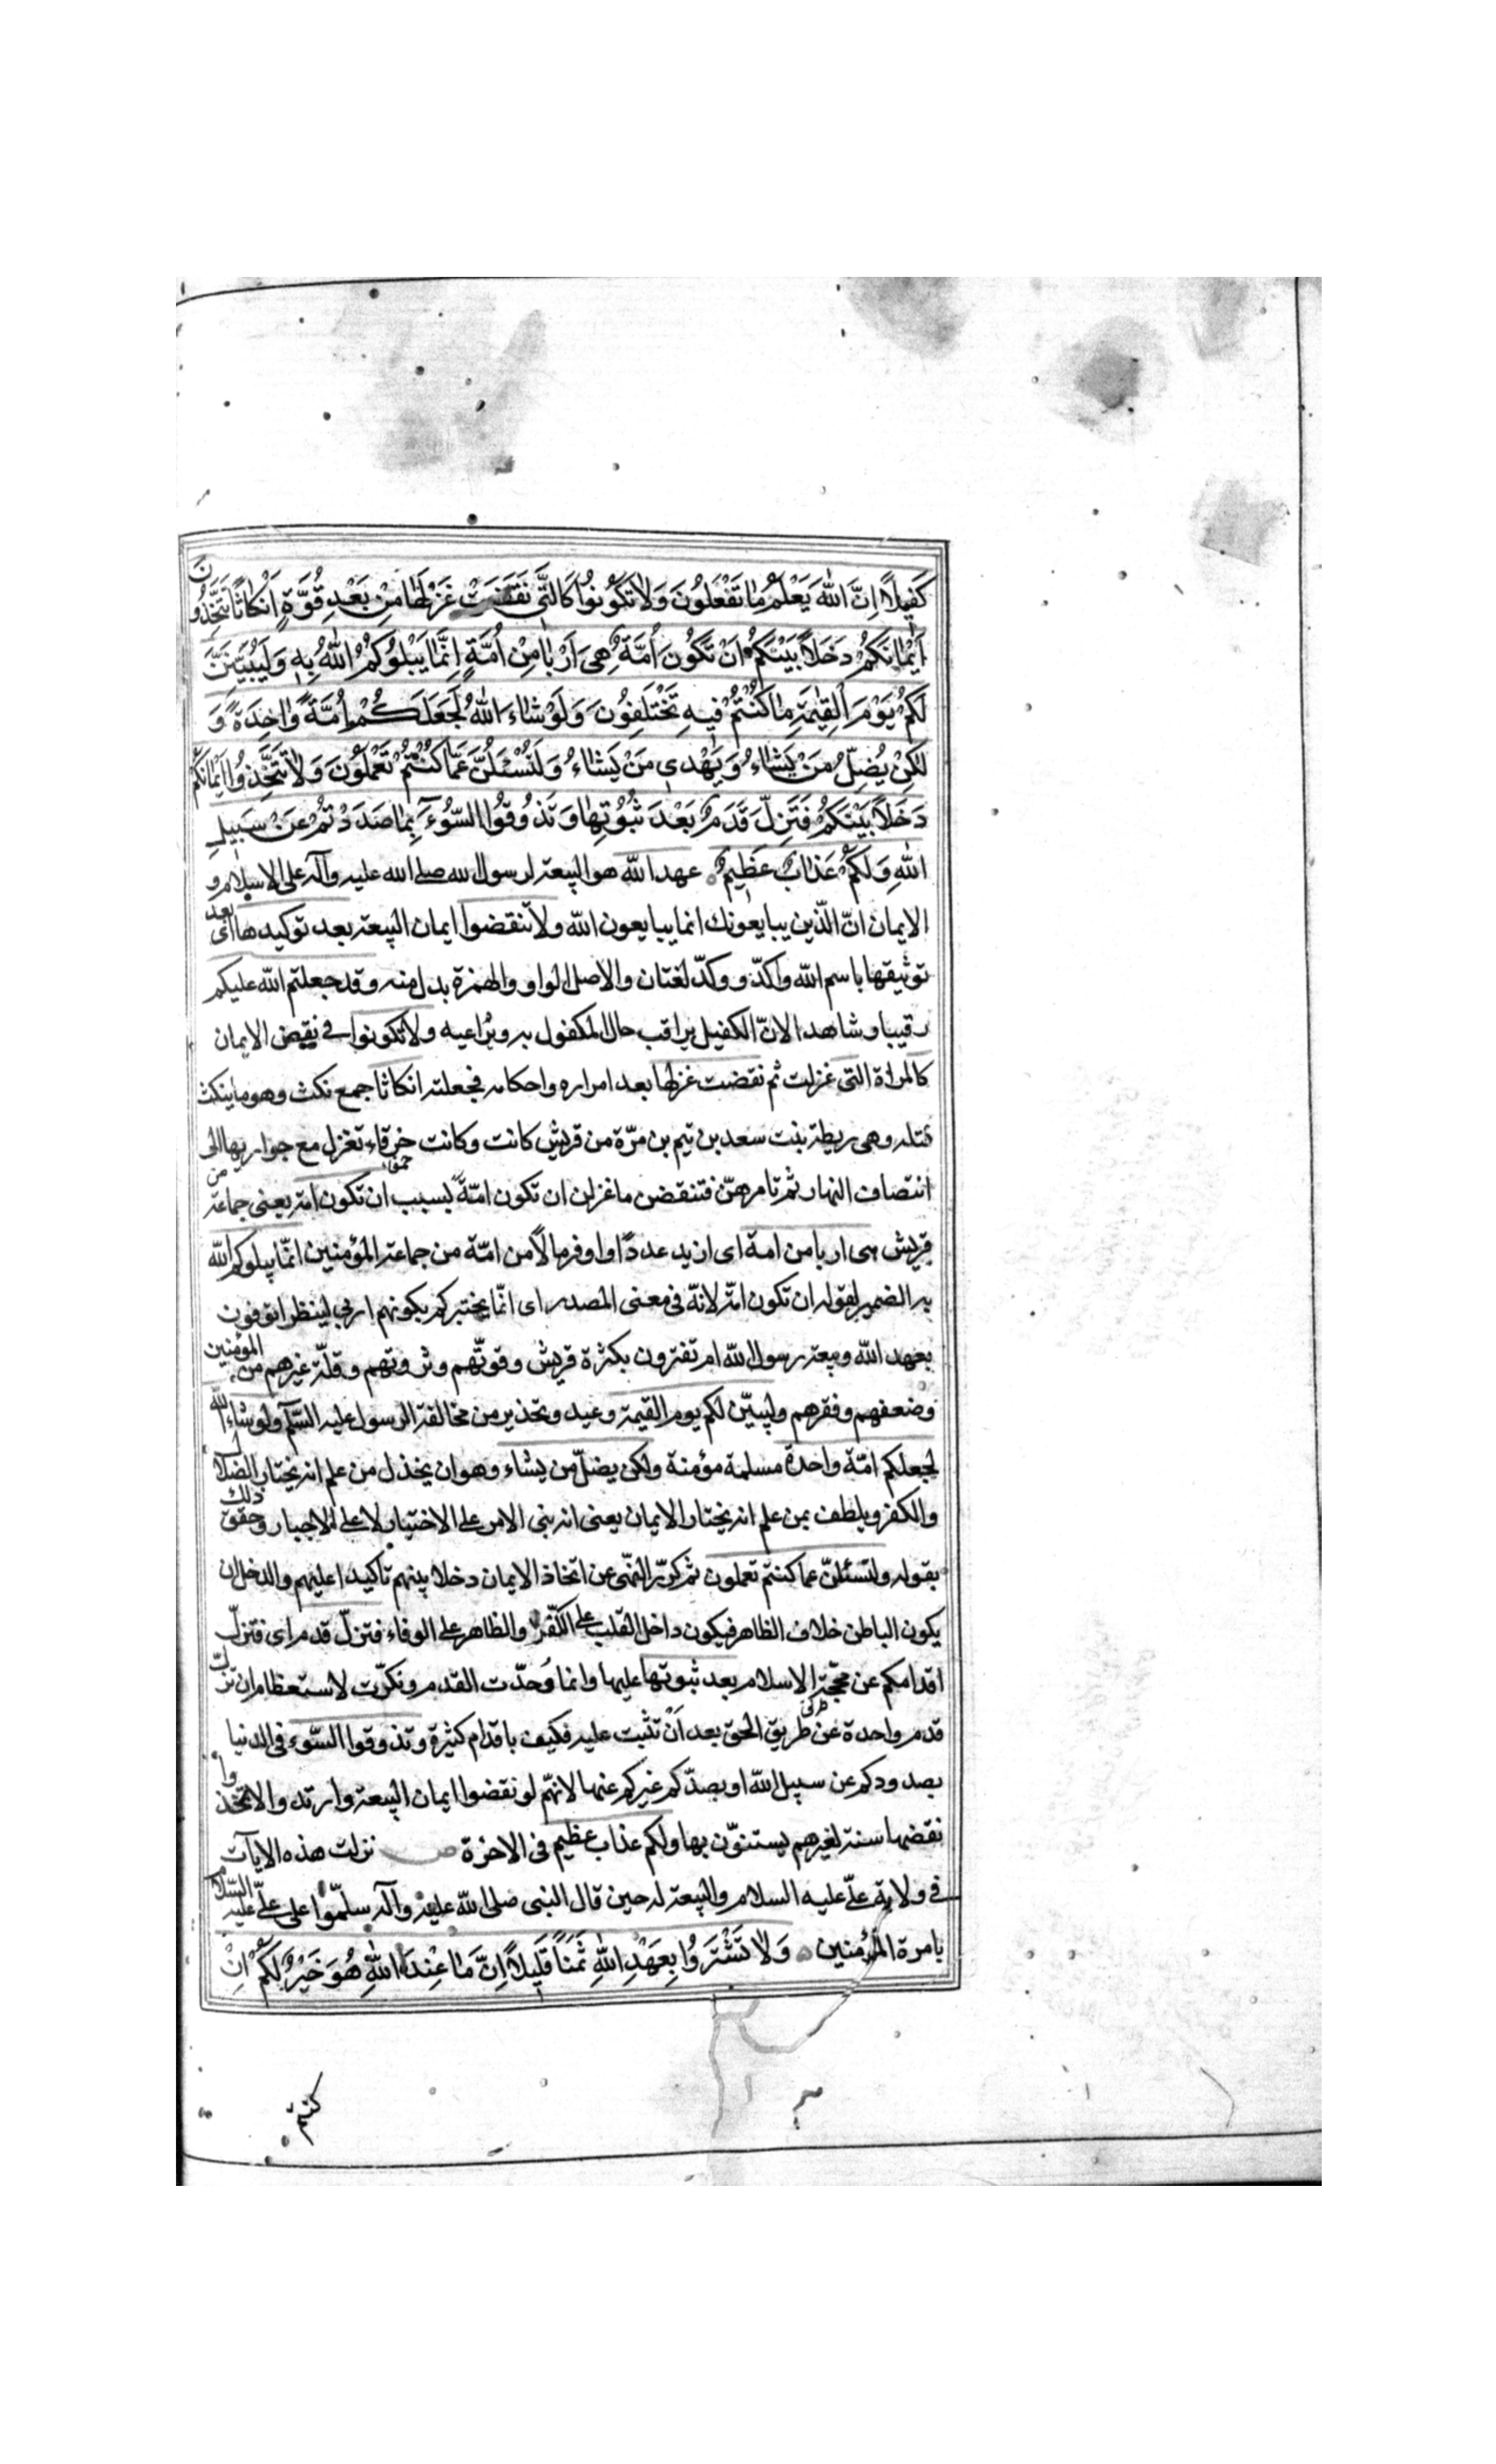 كَفِيلًا اِنَّ اللّٰهَ يَعْلَمُ مٰا تَفْعَلُونَ وَلٰا تَكُونُوا كَالَّتِى نَقَضَتْ غَزْلَهٰا مِنْ بَعْدِ قُوَّةٍ اَنْكٰاثًا تَتَّخِذُونَ
اَيْمٰانَكُمْ دَخَلًا بَيْنَكُمْ اَنْ تَكُونَ اُمَّةٌ هِىَ اَرْبٰا مِنْ اُمَّةٍ اِنَّمٰا يَبْلُوكُمُ اللّٰهُ بِهِ وَلَيُبَيِّنَنَّ
لَكُمْ يَوْمَ الْقِيٰمَةِ مٰا كُنْتُمْ فِيهِ تَخْتَلِفُونَ وَلَوْ شٰاءَ اللّٰهُ لَجَعَلَكُمْ اُمَّةً وٰاحِدَةً وَ
لٰكِنْ يُضِلُّ مَنْ يَشٰاءُ وَيَهْدِى مَنْ يَشٰاءُ وَلَتُسْئَلُنَّ عَمّٰا كُنْتُمْ تَعْمَلُونَ وَلٰا تَتَّخِذُوا اَيْمٰانَكُمْ
دَخَلًا بَيْنَكُمْ فَتَزِلَّ قَدَمٌ بَعْدَ ثُبُوتِهٰا وَتَذُوقُوا السُّوءَ بِمٰا صَدَدْتُمْ عَنْ سَبِيلِ
اللّٰهِ وَلَكُمْ عَذٰابٌ عَظِيمٌ عهد اللّه هو البيعة لرسول اللّه صلى الله عليه وآله على الاسلام و
الايمان انّ الّذين يبايعونك انما يبايعون اللّه ولا تنقضوا ايمان البيعة بعد توكيدها اى بعد
توثيقها باسم اللّه واكدّ و وكدّ لغتان والاصل الواو والهمزة بدل منه وقد جعلتم اللّه عليكم
رقيبا وشاهدا لانّ الكفيل يراقب حال المكفول به ويراعيه ولا تكونوا فى نقيض الايمان
كالمراة التى غزلت ثم نقضت غزلها بعد امراره واحكامه فجعلته انكاثا جمع نكث وهو ما ينكث
فتله وهى ريطة بنت سعد بن تيم بن مرّة من قريش كانت وكانت خرقاء حمقا تغزل مع جواريها الى
انتصاف النهار ثم تامرهنّ فتنقضن ما غزلن ان تكون امّةً بسبب ان تكون امة يعنى جماعة من
قريش هى اربا من امة اى ازيد عددًا واوفر مالًا من امّة من جماعة المؤمنين انّما يبلوكم اللّه
به الضمير لقوله ان تكون امّة لانّه فى معنى المصدر اى انّما يختبركم بكونهم اربى لينظر اتوفون
بعهد اللّه وبيعة رسول اللّه ام تفترون بكثرة قريش وقوتّهم وثروتهم وقلّة غيرهم من المؤمنين
وضعفهم وفقرهم وليبيّن لكم يوم القيمة وعيد وتحذير من مخالفة الرسول عليه السّلم ولو شاء اللّه
لجعلكم امّة واحدة مسلمة مؤمنة ولكن يضلّ من يشاء وهو ان يخذل من علم انه يختار الضلال
والكفر ويلطف بمن علم انه يختار الايمان يعنى انه بنى الامر على الاختيار لا على الاجبار وحقق ذلك
بقوله ولتسئلنّ عما كنتم تعملون ثم كرّر النّهى عن اتخاذ الايمان دخلا بينهم تاكيدا عليهم والدخل ان
يكون الباطن خلاف الظاهر فيكون داخل القلب على الكفر والظاهر على الوفاء فتزلّ قدم اى فتزلّ
اقدامكم عن محجّة الاسلام بعد ثبوتها عليها وانما وُحدّت القدم ونكرّت لاستعظام ان تزلّ
قدم واحدة عن طريق الحق بعد اَنْ تثبت عليه فكيف باقدام كثيرة وتذوقوا السّوء فى الدنيا
بصدودكم عن سبيل اللّه او بصدّكم غيركم عنها لانهّم لو نقضوا ايمان البيعة وارتدوا لاتّخذوا
نقضها سنة لغيرهم يستنوّن بها ولكم عذاب عظيم فى الاخرة ص نزلت هذه الايات
فى ولاية علىّ عليه السلام والبيعة له حين قال النبى صلى اللّه عليه وآله سلمّوا على علىّ عليه السّلام
بامرة المؤمنين وَلٰا تَشْتَرُوا بِعَهْدِ اللّٰهِ ثَمَنًا قَلِيلًا اِنَّ مٰا عِنْدَ اللّٰهِ هُوَ خَيْرٌ لَكُمْ اِنْ
كنتم